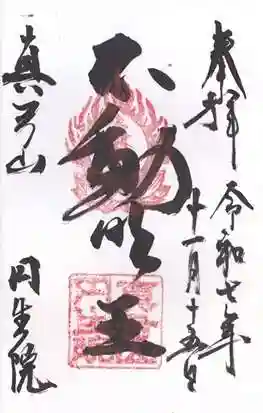 奉拝
令和七年
十一月十五日
不動明王
真弓山
円生院